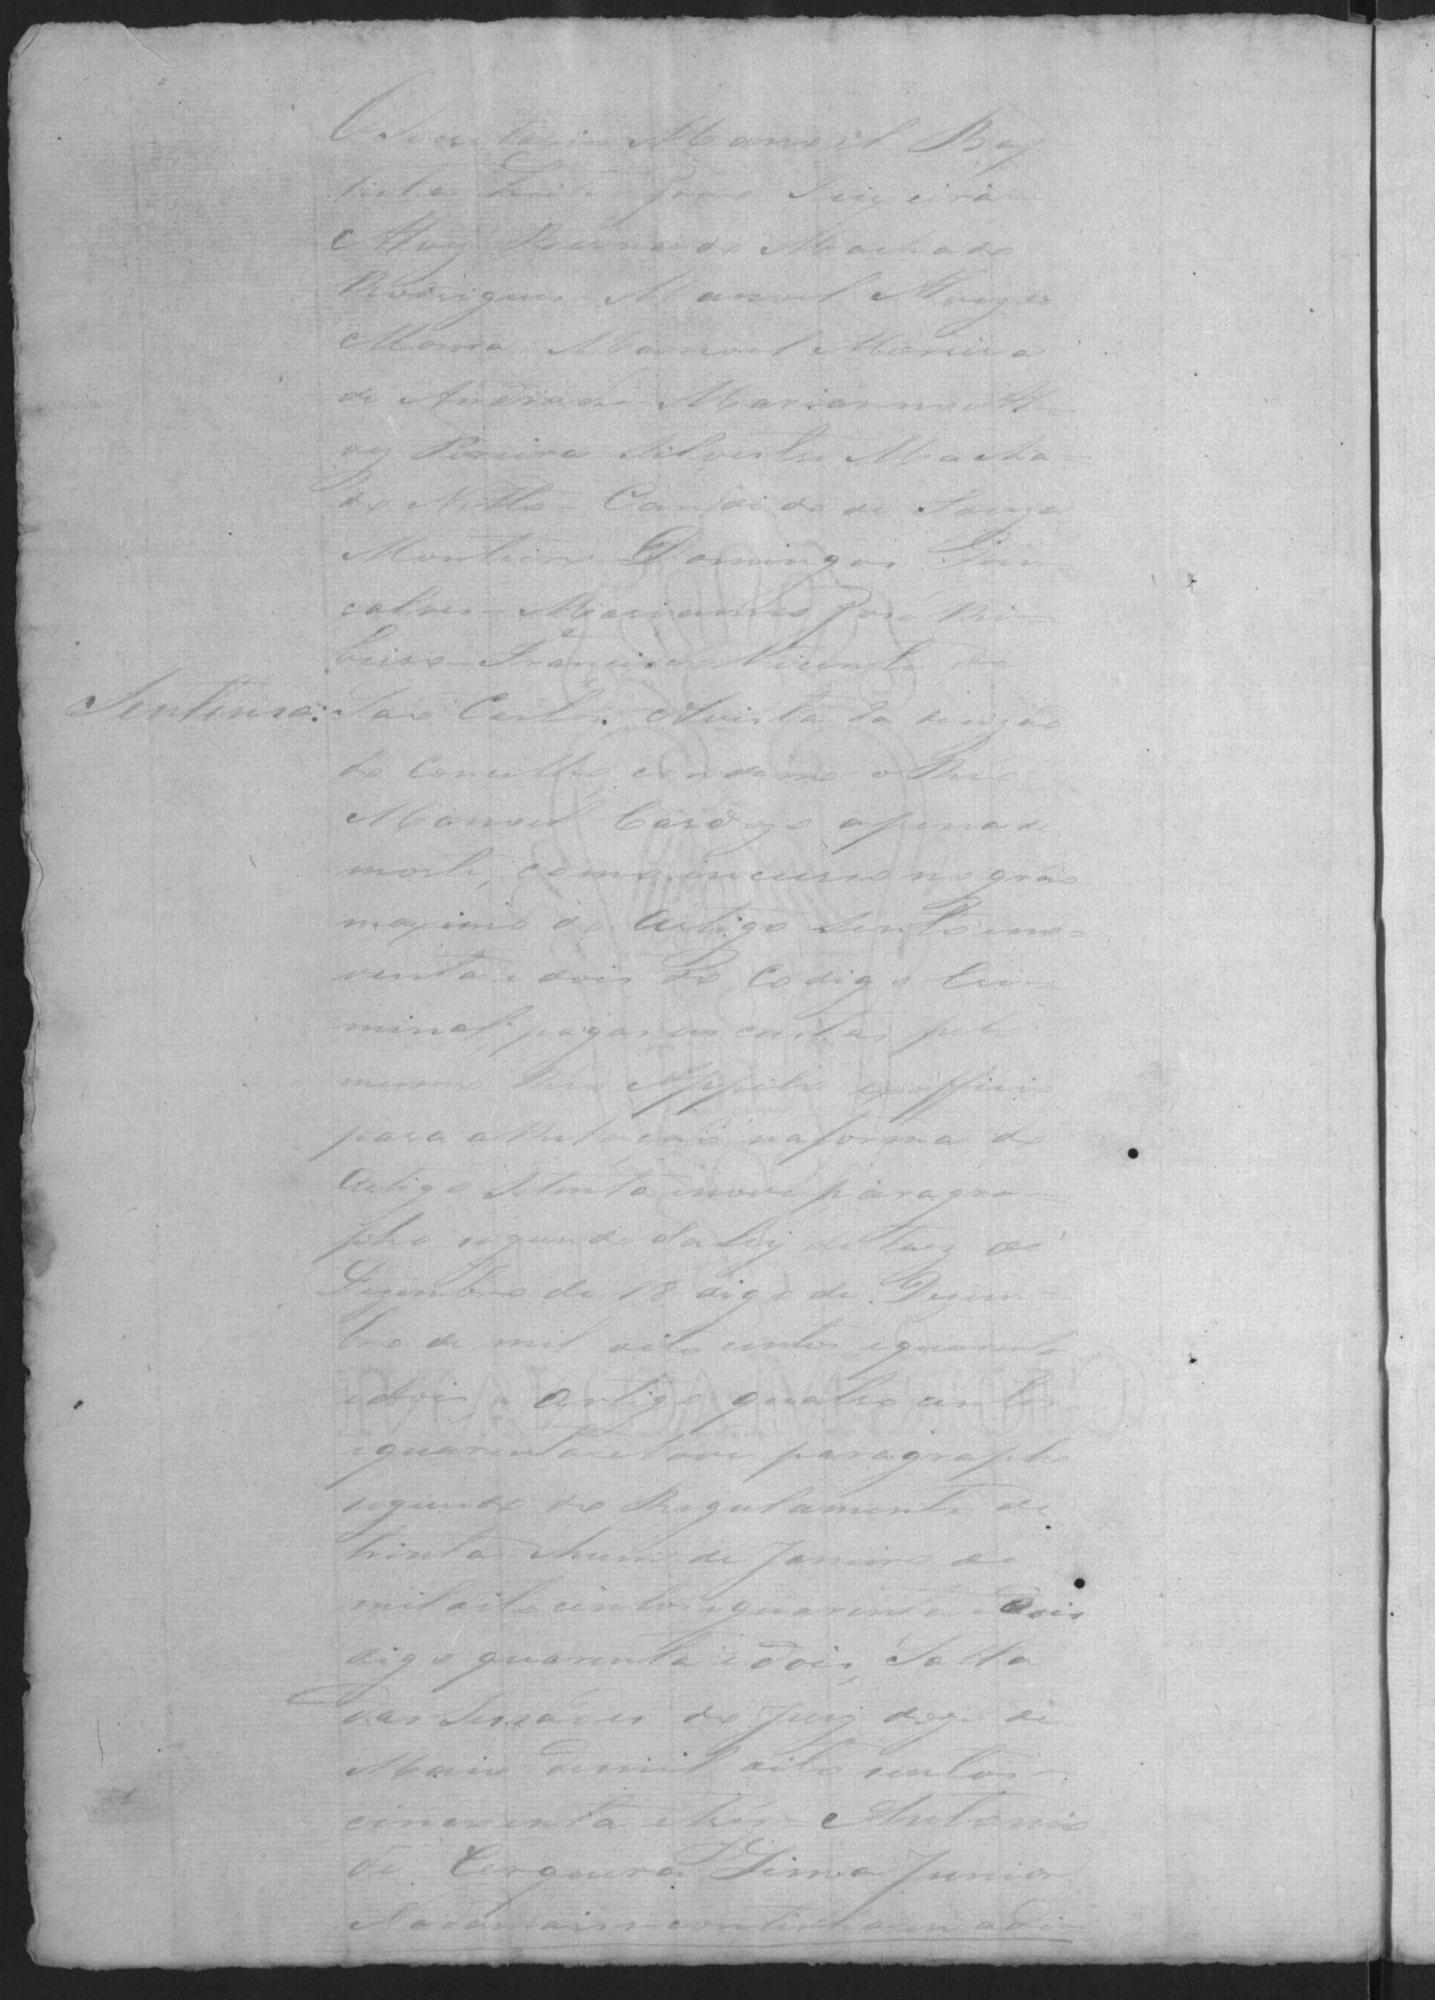 O Secretario Manoel Bap
tista Leite Jose Siqueira
Alves Bernardo Machado
Rodrigues Manoel Alves de
Moura Manoel Moreira
de Andrade Marianno Al
ves Pereira Silvestre Macha-
do Netto Candido de Souza
Monteiro Domingos Gon
calves Marianno José Ri-
beiro Francisco Vicente de
Sentensa: São Carlos. Avista da decizão
do Concelho condemno o Reo
Manoel Cardozo apena de
morte, como incurso no gráo
maximo do Artigo sento eno=
venta e dois do Codigo Cri-
minal; pagas as custas pelo
mesmo Reo Appello exofficio
para a Relação na forma do
Artigo setenta enove paragra-
pho segundo da Ley de tres de
Dezembro de 18 digo de Dezem-
bro de mil oito centos equarenta
edois, e Artigo quatro centos
equarenta enove paragrapho
segundo do Regulamento de
trinta ehum de Janeiro de
mil oito centos equarenta e dois
digo quarenta e dois, Salla
das Sessões do Jury doze de
Maio de mil oito sentos
cincoenta e tres Antonio
de Cerqueira Lima Junior
Nada mais se continha em adi-